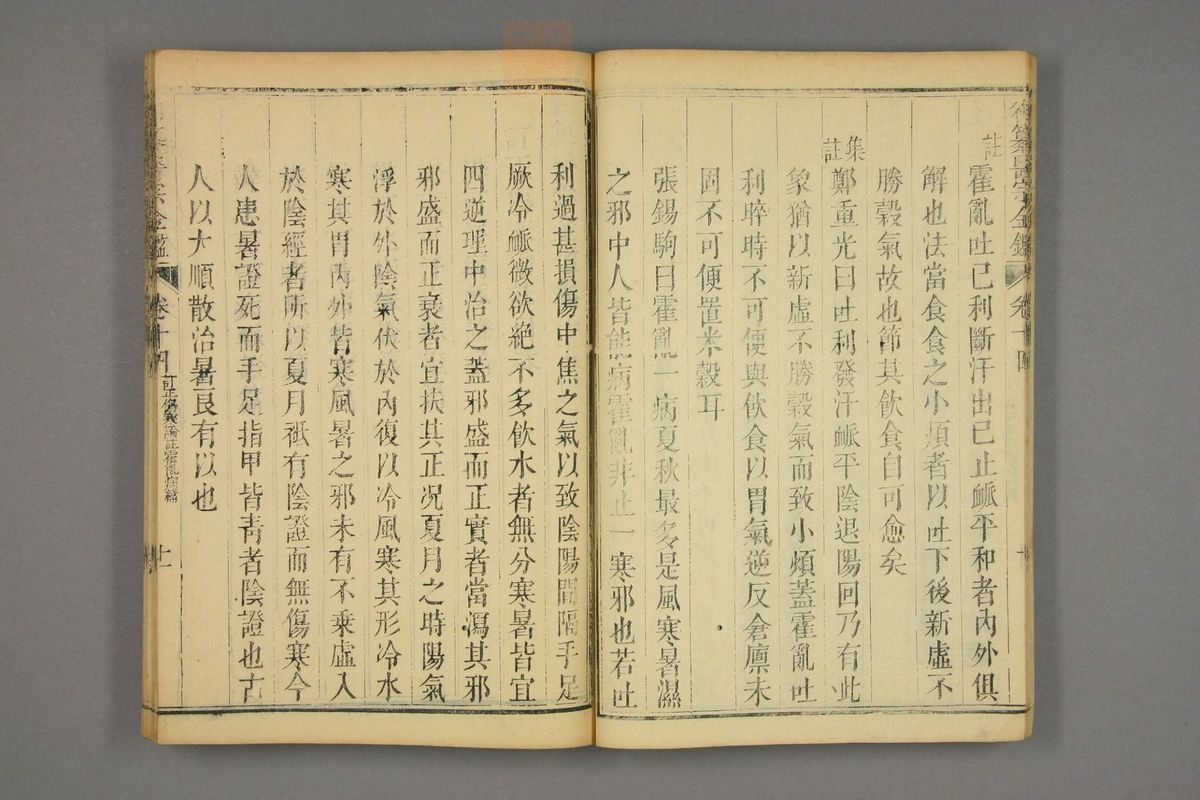 御纂醫宗金鑑
卷十四
註
霍亂吐已利斷汗出已止脈平和者內外俱
解也法當食食之小煩者以吐下後新虛不
勝穀氣故也節其飲食自可愈矣
集註
鄭重光曰吐利發汗脈平陰退陽回乃有此
象猶以新虛不勝穀氣而致小煩蓋霍亂吐
利晬時不可便與飲食以胃氣逆反倉廩未
固不可便置米穀耳
張錫駒曰霍亂一病夏秋最多是風寒暑濕
之邪中人皆能病霍亂非止一寒邪也若吐
利過甚損傷中焦之氣以致陰陽間隔手足
厥冷脈微欲絕不多飲水者無分寒暑皆宜
四逆理中治之蓋邪盛而正實者當瀉其邪
邪盛而正衰者宜扶其正況夏月之時陽氣
浮於外陰氣伏於內復以冷風寒其形冷水
寒其胃內外皆寒風暑之邪未有不乘虛入
於陰經者所以夏月祇有陰證而無傷寒今
人患暑證死而手足指甲皆靑者陰證也古
人以大順散治暑良有以也
宗金鑑
卷十四
訂正傷寒論註霍亂病篇
十一